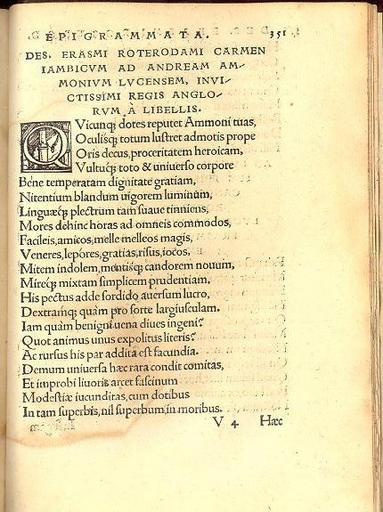 EPIGRAMMATA. 351
DES. ERASMI ROTERODAMI CARMEN
IAMBICVM AD ANDREAM AM-
MONIVM LVCENSEM, INVI-
CTISSIMI REGIS ANGLO-
RVM À LIBELLIS.
QVicunqꝫ dotes reputet Ammoni tuas,
Oculisqꝫ totum lustret admotis prope
Oris decus, proceritatem heroicam,
Vultuqꝫ toto & uniuerso corpore
Bene temperatam dignitate gratiam,
Nitentium blandum uigorem luminum,
Linguæqꝫ plectrum tam suaue tinniens,
Mores dehinc horas ad omneis commodos,
Facileis, amicos, melle melleos magis,
Veneres, lepóres, gratias, risus, iocos,
Mitem indolem, mentisqꝫ candorem nouum,
Mireqꝫ mixtam simplicem prudentiam,
His pectus adde sordido auersum lucro,
Dextramqꝫ quàm pro sorte largiusculam.
Iam quàm benigni uena diues ingeni?
Quot animus unus expolitus literis?
Ac rursus his par addita est facundia.
Demum uniuersa hæc rara condit comitas,
Et improbi liuoris arcet fascinum
Modestiæ iucunditas, cum dotibus
In tam superbis, nil superbum in moribus.
V 4 Hæc